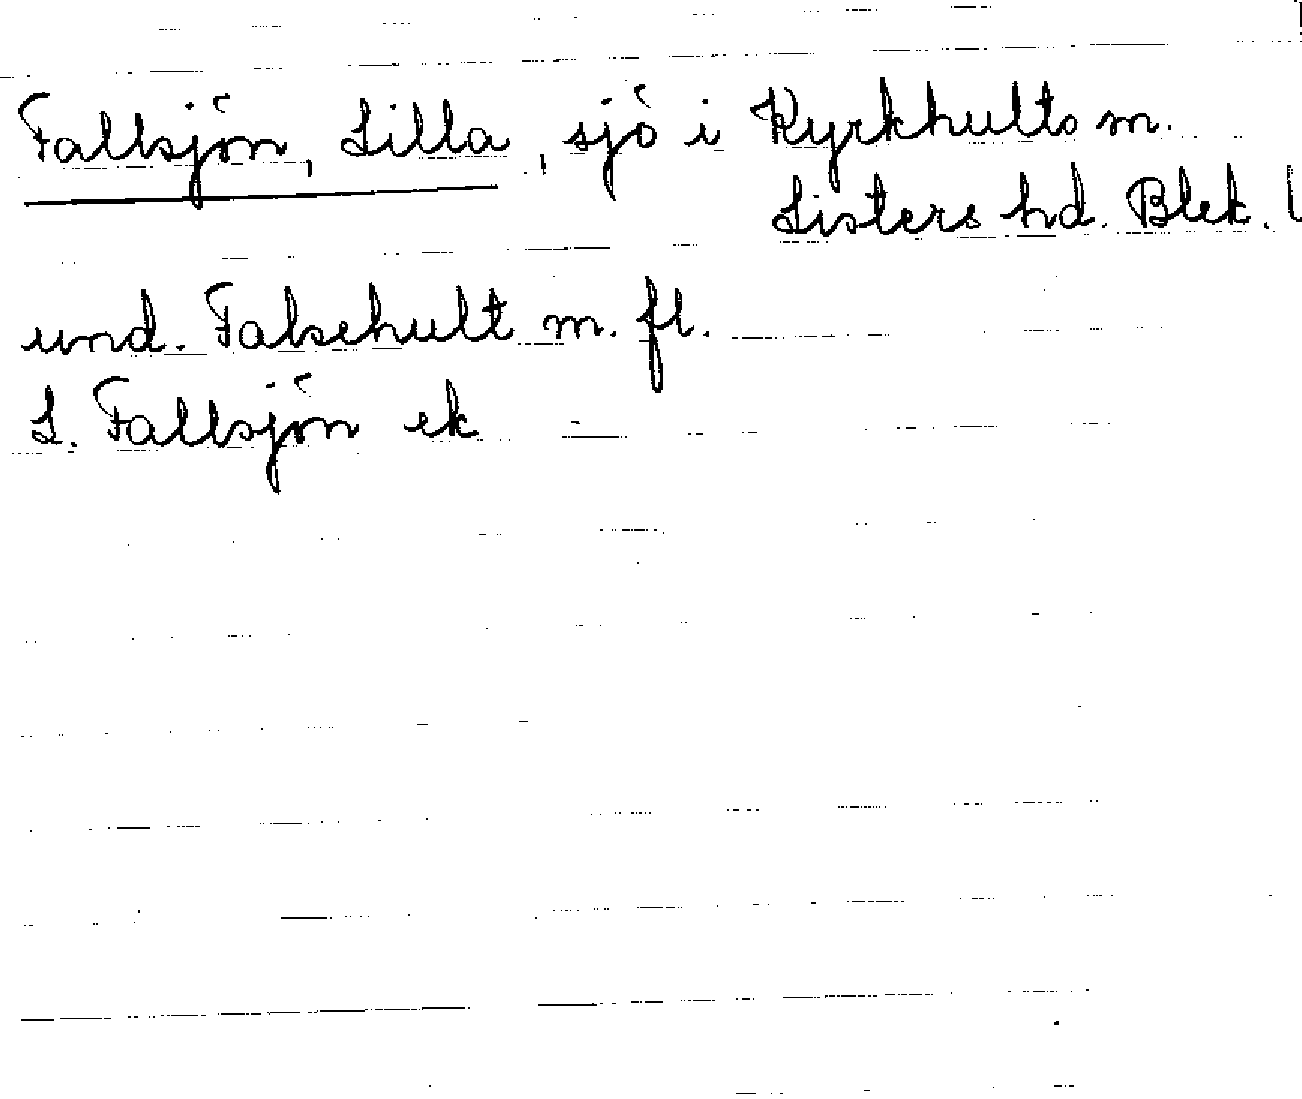 Fallsjön, Lilla, sjö i Kyrkhults m.
Listers hd. Blek. l
und. Falsehult m. fl.
L. Fallsjön ek